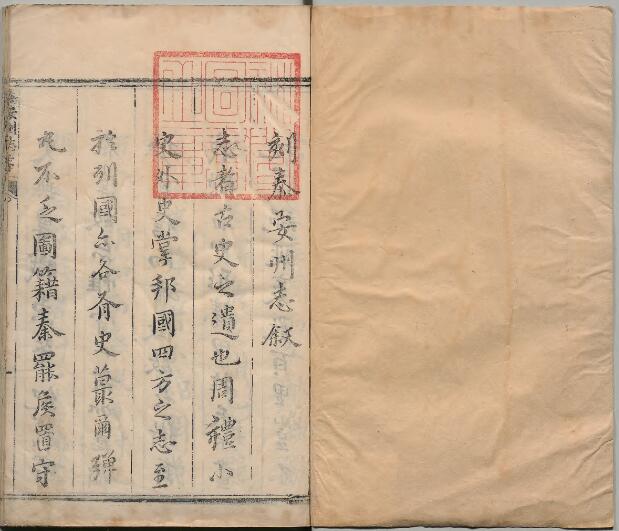 刻泰安州志敘
志者古史之遺也周禮小
史外史掌邦國四方之志至
於列國亦各有史蕞爾彈
丸不乏圖籍秦罷侯置守